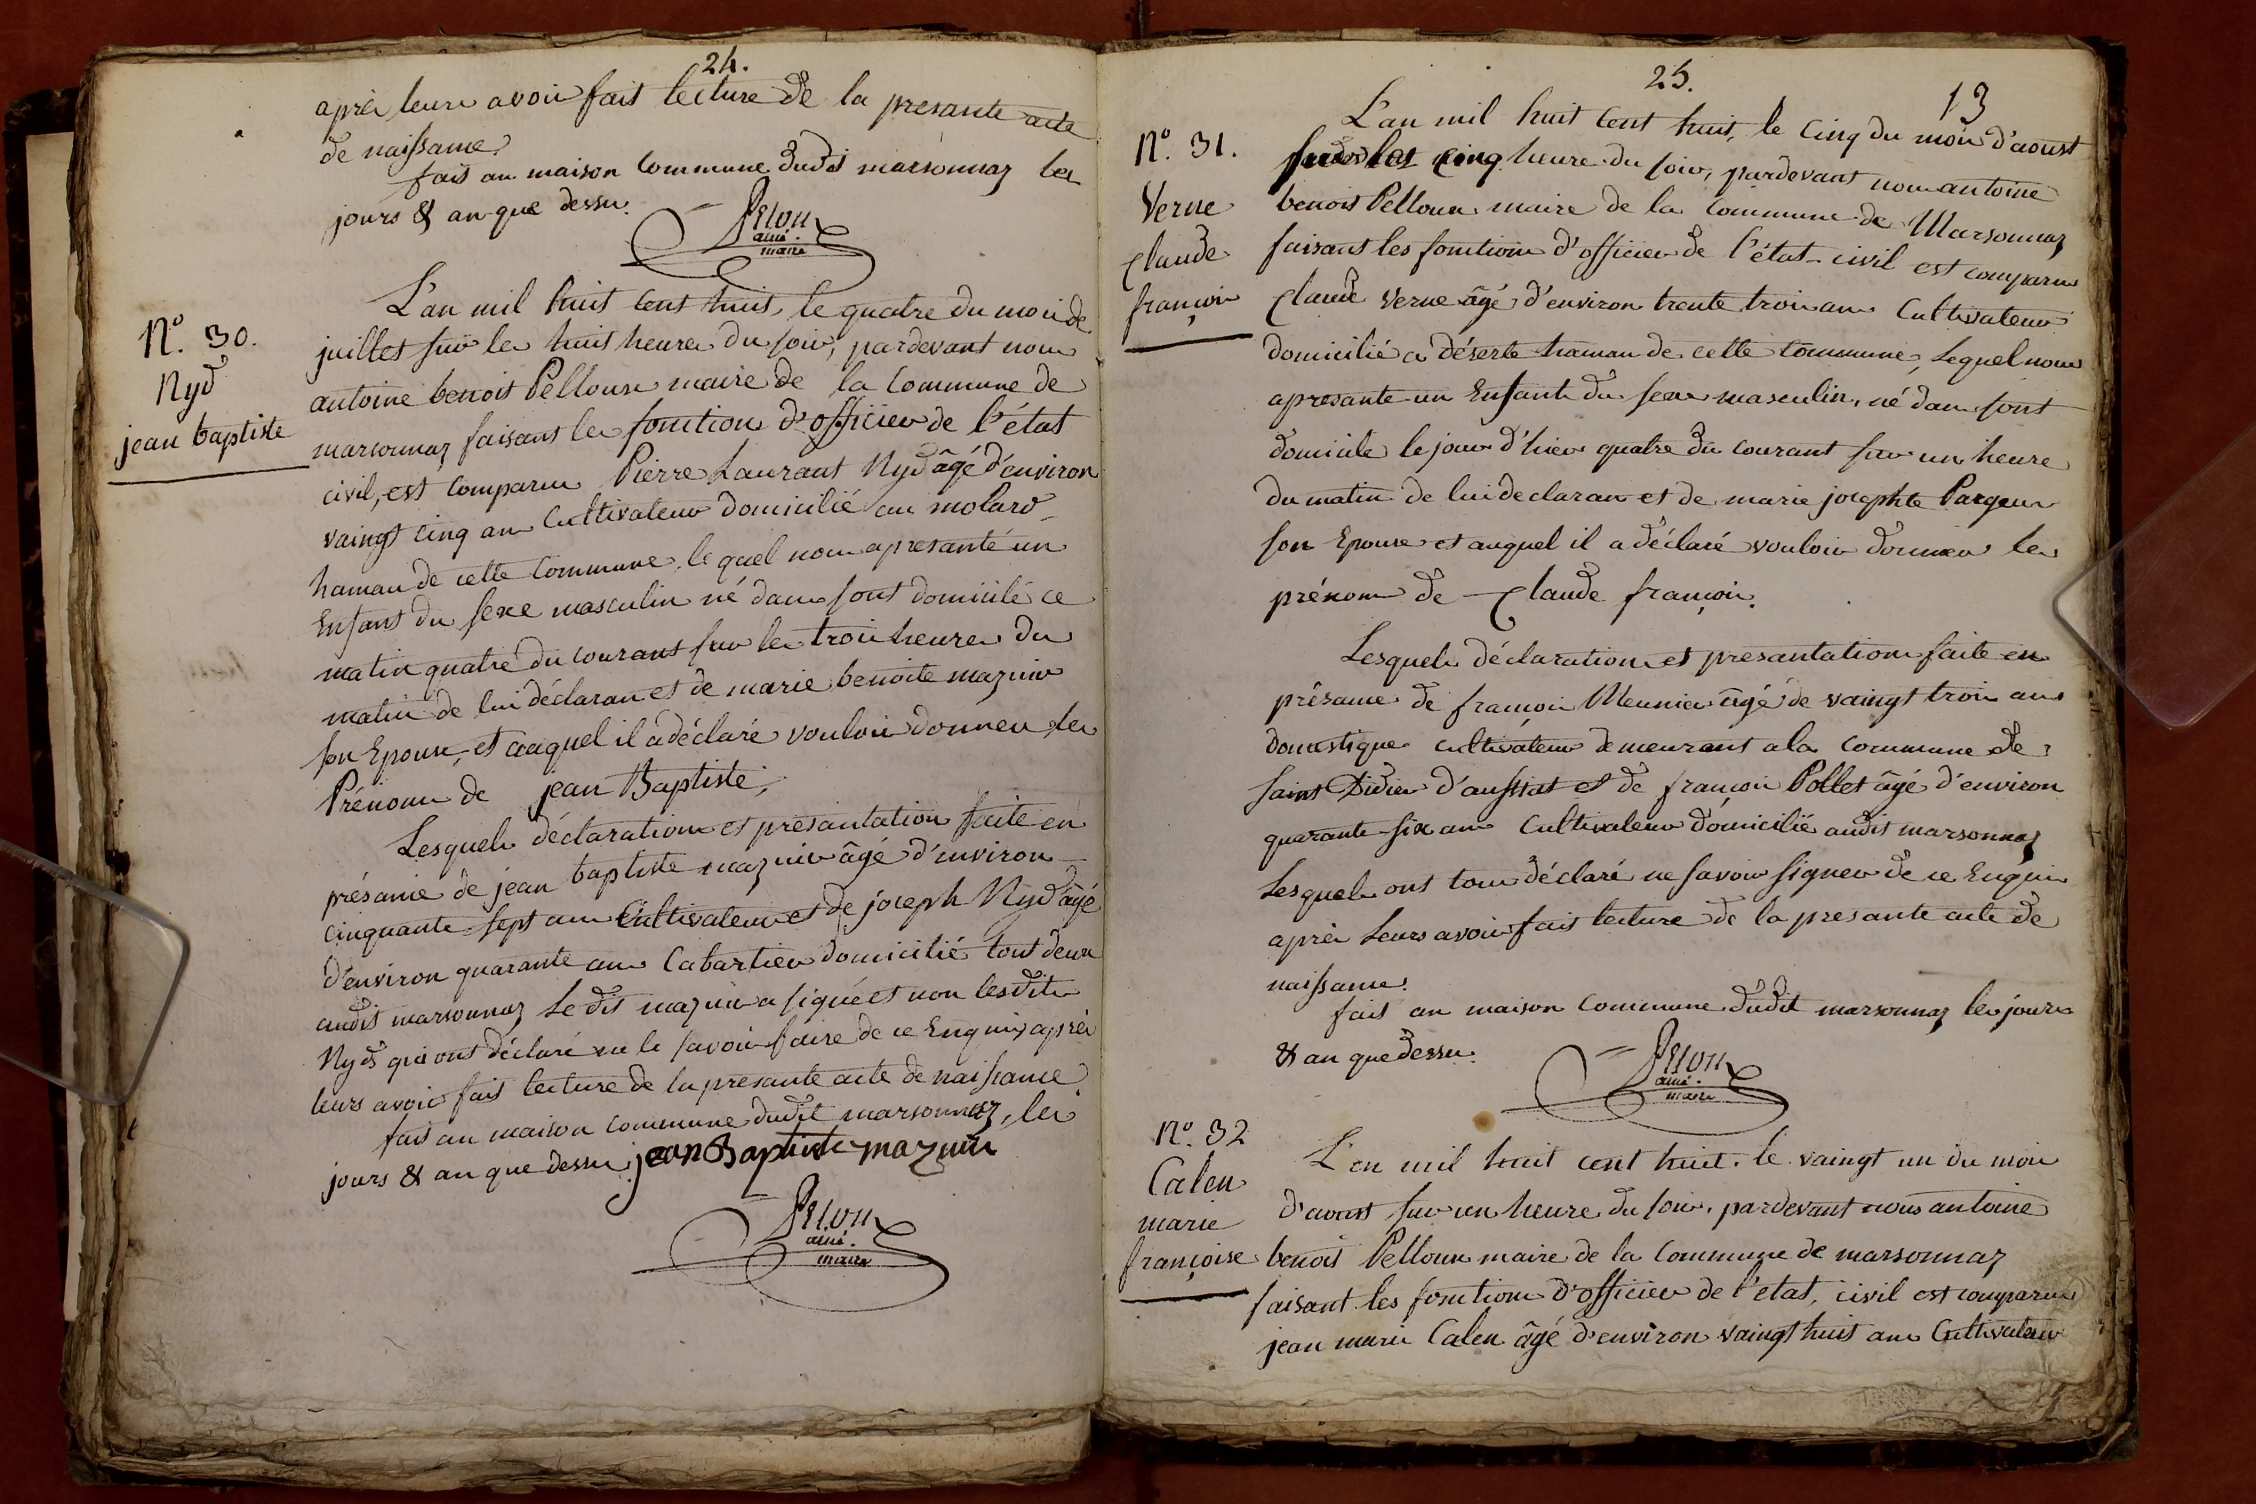 24.
après leurs avoir fait lecture de la presante acte
de naissance.
fait au maison Commune dudit marsonnaz les
jours & an que dessu.
Pelou
ainé.
maire
N.º 30.
Nyd
jean baptiste
L'an mil huit cent huit, le quatre du moi de
juillet sur les huit heures du soir, pardevant nous
antoine benoit Pelloux maire de la Commune de
marsonnaz faisant les fonction d'officier de l'état
civil, est comparu Pierre Laurant Nyd âgé d'environ
vaingt cinq ans Cultivateur domicilié au molard
hamau de cette Commune, le quel nous apresanté un
Enfant du sexe masculin né dans sont domicile ce
matin quatre du courant sur les trois heures du
matin de lui déclarant et de marie benoite mazuir
son Epouse, et auquel il a déclaré vouloir donner les
Prénoms de jean Baptiste,
Lesquels déclaration et présantation faite en
présance de jean baptiste mazuir âgé d'environ
cinquante sept ans Cultivateur et de joseph Nyd âgé
d'environ quarante ans Cabartier domicilié tout deux
audit marsonnaz le dit mazuir a signé et non lesdits
Nyds qui ont déclaré ne le savoir faire de ce Enquis, après
leurs avoir fait lecture de la presante acte de naissance
fait au maison commune dudit marsonnaz, les
jours & an que dessu. jean Baptiste mazuir
Pelou
ainé.
maire
25.
13
N.º 31.
Verne
Claude
françois
L'an mil huit Cent huit, le Cinq du mois d'aoust
sur les cinq heure du soir, pardevant nous antoine
benoit Pelloux maire de la Commune de Marsonnaz
faisant les fonctions d'officier de l'état civil est comparu
Claude Verne âgé d'environ trente trois ans Cultivateur
domicilié a déserte hamau de cette commune, Lequel nous
apresante un Enfant du sexe masculin, né dans sont
domicile le jour d'hier quatre du courant sur un heure
du matin de lui declarant et de marie josephte Pargeux
son Epouse et auquel il a déclaré vouloir donner les
prénoms de Claude françois.
Lesquels déclaration et presantation faite en
présance de françois Meunier âgé de vaingt trois ans
domestique cultivateur demeurant a la commune de
Saint Didier d'aussiat et de françois Pollet âgé d'environ
quarante six ans Cultivateur domicilié audit marsonnaz
Lesquels ont tous déclaré ne savoir signer de ce Enquis
après Leurs avoir fait lecture de la presante acte de
naissance.
fait au maison Commune dudit marsonnaz les jours
& an que dessu.
Pelou
ainé.
maire
N.º 32
Calen
marie
françoise
L'an mil huit cent huit. le vaingt un du mois
d'avoust sur un heure du soir, pardevant nous antoine
benoit Pelloux maire de la Commune de marsonnaz
faisant les fonctions d'officier de l'état, civil est comparu
jean marie Calen âgé d'environ vaingt huit ans Cultivateur